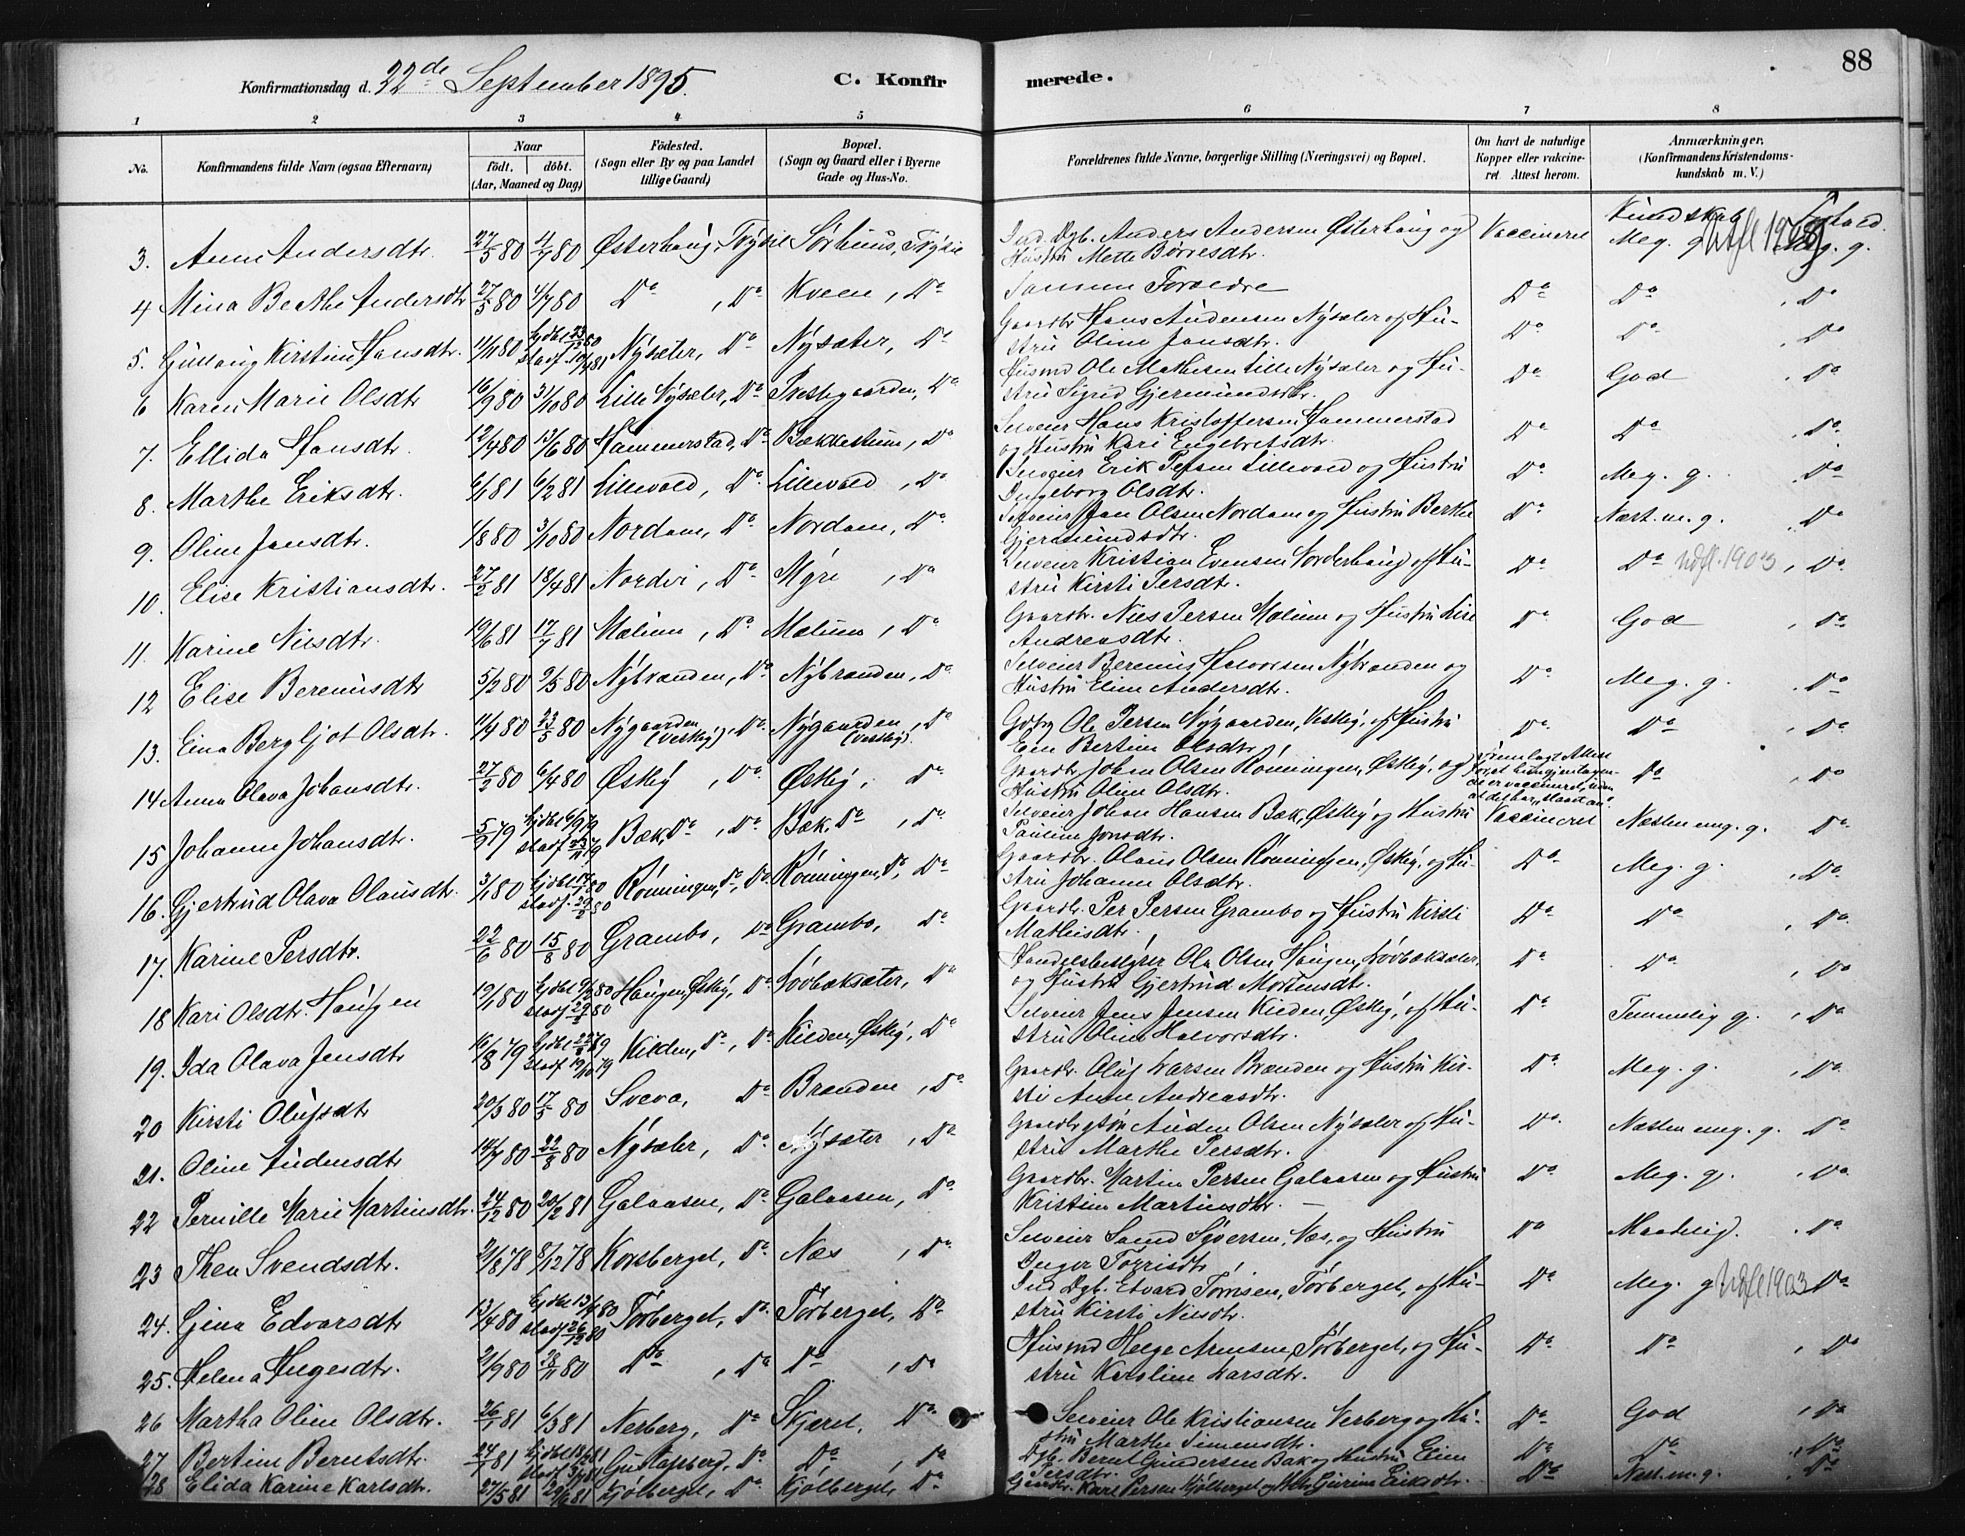 88
Konfirmationsdag d. 22de September 1895.
C. Konfirmerede.
1 2 3 4 5 6 7 8
No. Konfirmandens fulde Navn (ogsaa Efternavn)
Naar födt. döbt. (Aar, Maaned og Dag)
Födested. (Sogn eller By og paa Landet tillige Gaard)
Bopæl. (Sogn og Gaard eller i Byerne Gade og Hus-No.
Forældrenes fulde Navne, borgerlige Stilling (Næringsvei) og Bopæl.
Om havt de naturlige Kopper eller vakcineret Attest herom.
Anmærkninger. (Konfirmandens Kristendomskundskab m. V.)
Kundskab
3. Anne Andersdtr. 27/5 80 4/7 80 Østerhaug, Trysil Sørhuus, Trysil Ind. Dgb. Anders Andersen Østerhaug og Vaccineret Meg. g. Meg. g.
Hustru Mette Børresdtr.
4 Mina Berthe Andersdtr 27/5 80 4/7 80 Do, Do Kveen, Do Samme Forældre Do Do Do
5. Gullaug Kirstine Hansdtr. 11/11 80 Nysæter, Do Nysæter, Do Gaardbr Hans Audensen Nysæter og Hu- Do Do Do
stru Oline Jansdtr.
6 Karen Marie Olsdtr 16/9 80 31/10 80 Lille Nysæter, Do Prestegaarden, Do Husmd Ole Mathisen Lille Nysæter og Hu- Do God Do
stru Sigrid Gjermundsdtr.
7. Ellida Hansdtr. 12/4 80 13/6 80 Hammerstad, Do Bækkestuen, Do Selveier Hans Kristoffersen Hammerstad Do Do Do
og Hustru Kari Engebretsdtr.
8. Marthe Eriksdtr. 6/1 81 6/2 81 Lillevold, Do Lillevold, Do Selveier Erik Persen Lillevold og Hustru Do Meg. g. Do
Ingeborg Olsdtr.
9. Oline Jansdtr. 1/8 80 3/10 80 Nordam, Do Nordam, Do Selveier Jan Olsen Nordam og Hustru Berthe Do Næst. m. g. Do
Gjermundsdtr.
10. Elise Kristiansdtr. 27/2 81 18/4 81 Nordvi, Do Myre, Do Selveier Kristian Evensen Norderhaug og Hu- Do Do Udfl. 1903, Do
stru Kirsti Persdtr.
11. Karine Nilsdtr. 19/6 81 17/7 81 Mælum, Do Mælum, Do Gaardbr. Nils Persen Mælum og Hustru Lise Do God Do
Andreasdtr.
12 Elise Bereniusdtr 5/2 80 9/5 80 Nybranden, Do Nybranden, Do Selveier Berenius Halvorsen Nybranden og Do Meg. g. Do
Hustru Eline Andersdtr.
13. Eina Bergljot Olsdtr. 11/4 80 23/5 80 Nygaarden (Vestby), Do Nygaarden (Vestby), Do Gdbr Ole Persen Nygaarden, Vestby, og Hustru Do Do Do
Bertine Olsdtr
14 Anna Olava Johansdtr. 27/2 80 6/4 80 Østby, Do Østby, Do Gaardbr Johan Olsen Rønningen, Østby, og Do Do
Hustru Oline Olsdtr.
15 Johanne Johansdtr. 5/9 79 Bæk, Do, Do Bæk, Do, Do Selveier Johan Hansen Bæk, Østby og Hustru Vaccineret Næsten meg. g. Do
Pauline Jonsdtr.
16. Gjertrud Olava Olausdtr. 3/1 80 Rønningen, Do, Do Rønningen, Do, Do Gaardbr. Olaus Olsen Rønningen, Østby, og Hu- Do Meg. g. Do
stru Johanne Olsdtr.
17. Karine Persdtr. 22/6 80 15/8 80 Grambo, Do Grambo, Do Gaardbr. Per Persen Grambo og Hustru Kirsti Do Do Do
Mathisdtr.
18 Kari Olsdtr. Haugen 19/1 80 Haugen, Østby, Do Lovbæksæter, Do Handelsbestyrer Ola Olsen Haugen, Lovbæksæter, Do Do Do
og Hustru Gjertrud Mortensdtr.
19. Ida Olava Jensdtr 16/8 79 Kilden, Do, Do Kilden, Østby, Do Selveier Jens Jensen Kilden, Østby, og Hu- Do Temmelig g. Do
stru Oline Halvorsdtr.
20 Kirsti Olufsdtr 20/3 80 17/5 80 Sveva, Do Branden, Do Gaardbr. Oluf Larsen Branden og Hustru Kir- Do Meg. g. Do
sti Anne Andreasdtr.
21. Oline Audensdtr 14/7 80 22/8 80 Nysæter, Do Nysæter, Do Gaardbrgsøn Auden Olsen Nysæter og Hu- Do Næsten meg. g. Do
stru Marthe Persdtr.
22 Pernille Marie Martinsdtr. 24/12 80 20/2 81 Galaasen, Do Galaasen, Do Gaardbr. Martin Persen Galaasen og Hustru Do Meg. g. Do
Kristine Martinsdtr.
23 Thea Svendsdtr. 2/8 78 8/12 78 Korsberget, Do Næs, Do Selveier Svend Syversen, Næs, og Hustru Do Maadelig. Do
Inger Torrisdtr.
24. Gjena Edvarsdtr 13/4 80 Tørberget, Do Tørberget, Do Ind. Dgb. Edvard Torrisen, Tørberget, og Hu- Do Meg. g. Udfl 1903 Do
stru Kirsti Nilsdtr.
25. Helena Helgesdtr. 2/9 80 28/11 80 Do, Do Do, Do Husmd Helge Arnesen, Tørberget, og Hu- Do Do Do
stru Karoline Larsdtr.
26 Martha Oline Olsdtr. 26/1 81 6/3 81 Nerberg, Do Skjæret, Do Selveier Ole Kristiansen Nerberg og Hu- Do God Do
stru Marthe Simensdtr.
27 Bertine Berntsdtr. 24/1 81 Gustafsberg, Do Do, Do Dgb. Bernt Gundersen Bak og Hustru Eline Do Do Do
Persdtr.
28 Elida Karine Karlsdtr. 27/5 81 29/6 81 Kjølberget, Do Kjølberget, Do Gaardbr. Karl Persen Kjølberget og Hustru Gurine Eriksdtr. Do Næst. m. g. Do